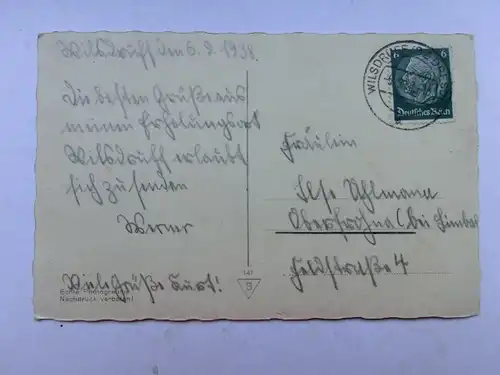 Wilsdruff den 6.9.1938.
Die besten Grüße aus
meinen Erholungsort
Wilsdruff erlaubt
sich zu senden
Werner
Viele Grüße Kurt!
Echte Photographie
Nachdruck verboten!
147
S
WILSDRUFF
6 6
Deutsches Reich
Fräulein
Ilse Uhlmann
Oberfrohna (bei Limbach
Feldstraße 4